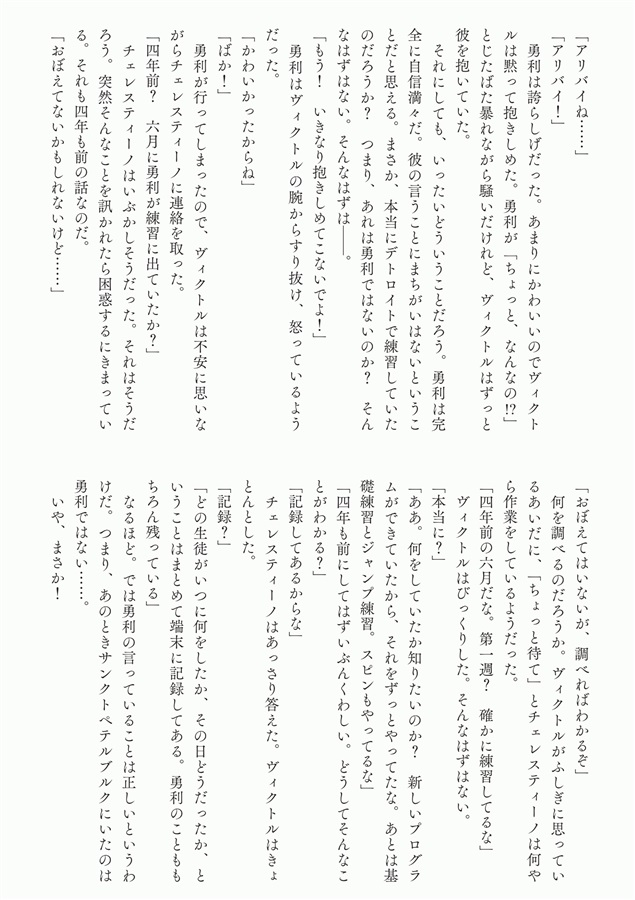 「アリバイね……」
「アリバイ！」
　勇利は誇らしげだった。あまりにかわいいのでヴィクト
ルは黙って抱きしめた。勇利が「ちょっと、なんなの!?」
とじたばた暴れながら騒いだけれど、ヴィクトルはずっと
彼を抱いていた。
　それにしても、いったいどういうことだろう。勇利は完
全に自信満々だ。彼の言うことにまちがいはないというこ
とだと思える。まさか、本当にデトロイトで練習していた
のだろうか？　つまり、あれは勇利ではないのか？　そん
なはずはない。そんなはずは――。
「もう！　いきなり抱きしめてこないでよ！」
　勇利はヴィクトルの腕からすり抜け、怒っているよう
だった。
「かわいかったからね」
「ばか！」
　勇利が行ってしまったので、ヴィクトルは不安に思いな
がらチェレスティーノに連絡を取った。
「四年前？　六月に勇利が練習に出ていたか？」
　チェレスティーノはいぶかしそうだった。それはそうだ
ろう。突然そんなことを訊かれたら困惑するにきまってい
る。それも四年も前の話なのだ。
「おぼえてないかもしれないけど……」
「おぼえてはいないが、調べればわかるぞ」
　何を調べるのだろうか。ヴィクトルがふしぎに思ってい
るあいだに、「ちょっと待て」とチェレスティーノは何や
ら作業をしているようだった。
「四年前の六月だな。第一週？　確かに練習してるな」
　ヴィクトルはびっくりした。そんなはずはない。
「本当に？」
「ああ。何をしていたか知りたいのか？　新しいプログラ
ムができていたから、それをずっとやってたな。あとは基
礎練習とジャンプ練習。スピンもやってるな」
「四年も前にしてはずいぶんくわしい。どうしてそんなこ
とがわかる？」
「記録してあるからな」
　チェレスティーノはあっさり答えた。ヴィクトルはきょ
とんとした。
「記録？」
「どの生徒がいつに何をしたか、その日どうだったか、と
いうことはまとめて端末に記録してある。勇利のことも
ちろん残っている」
　なるほど。では勇利の言っていることは正しいというわ
けだ。つまり、あのときサンクトペテルブルクにいたのは
勇利ではない……。
　いや、まさか！